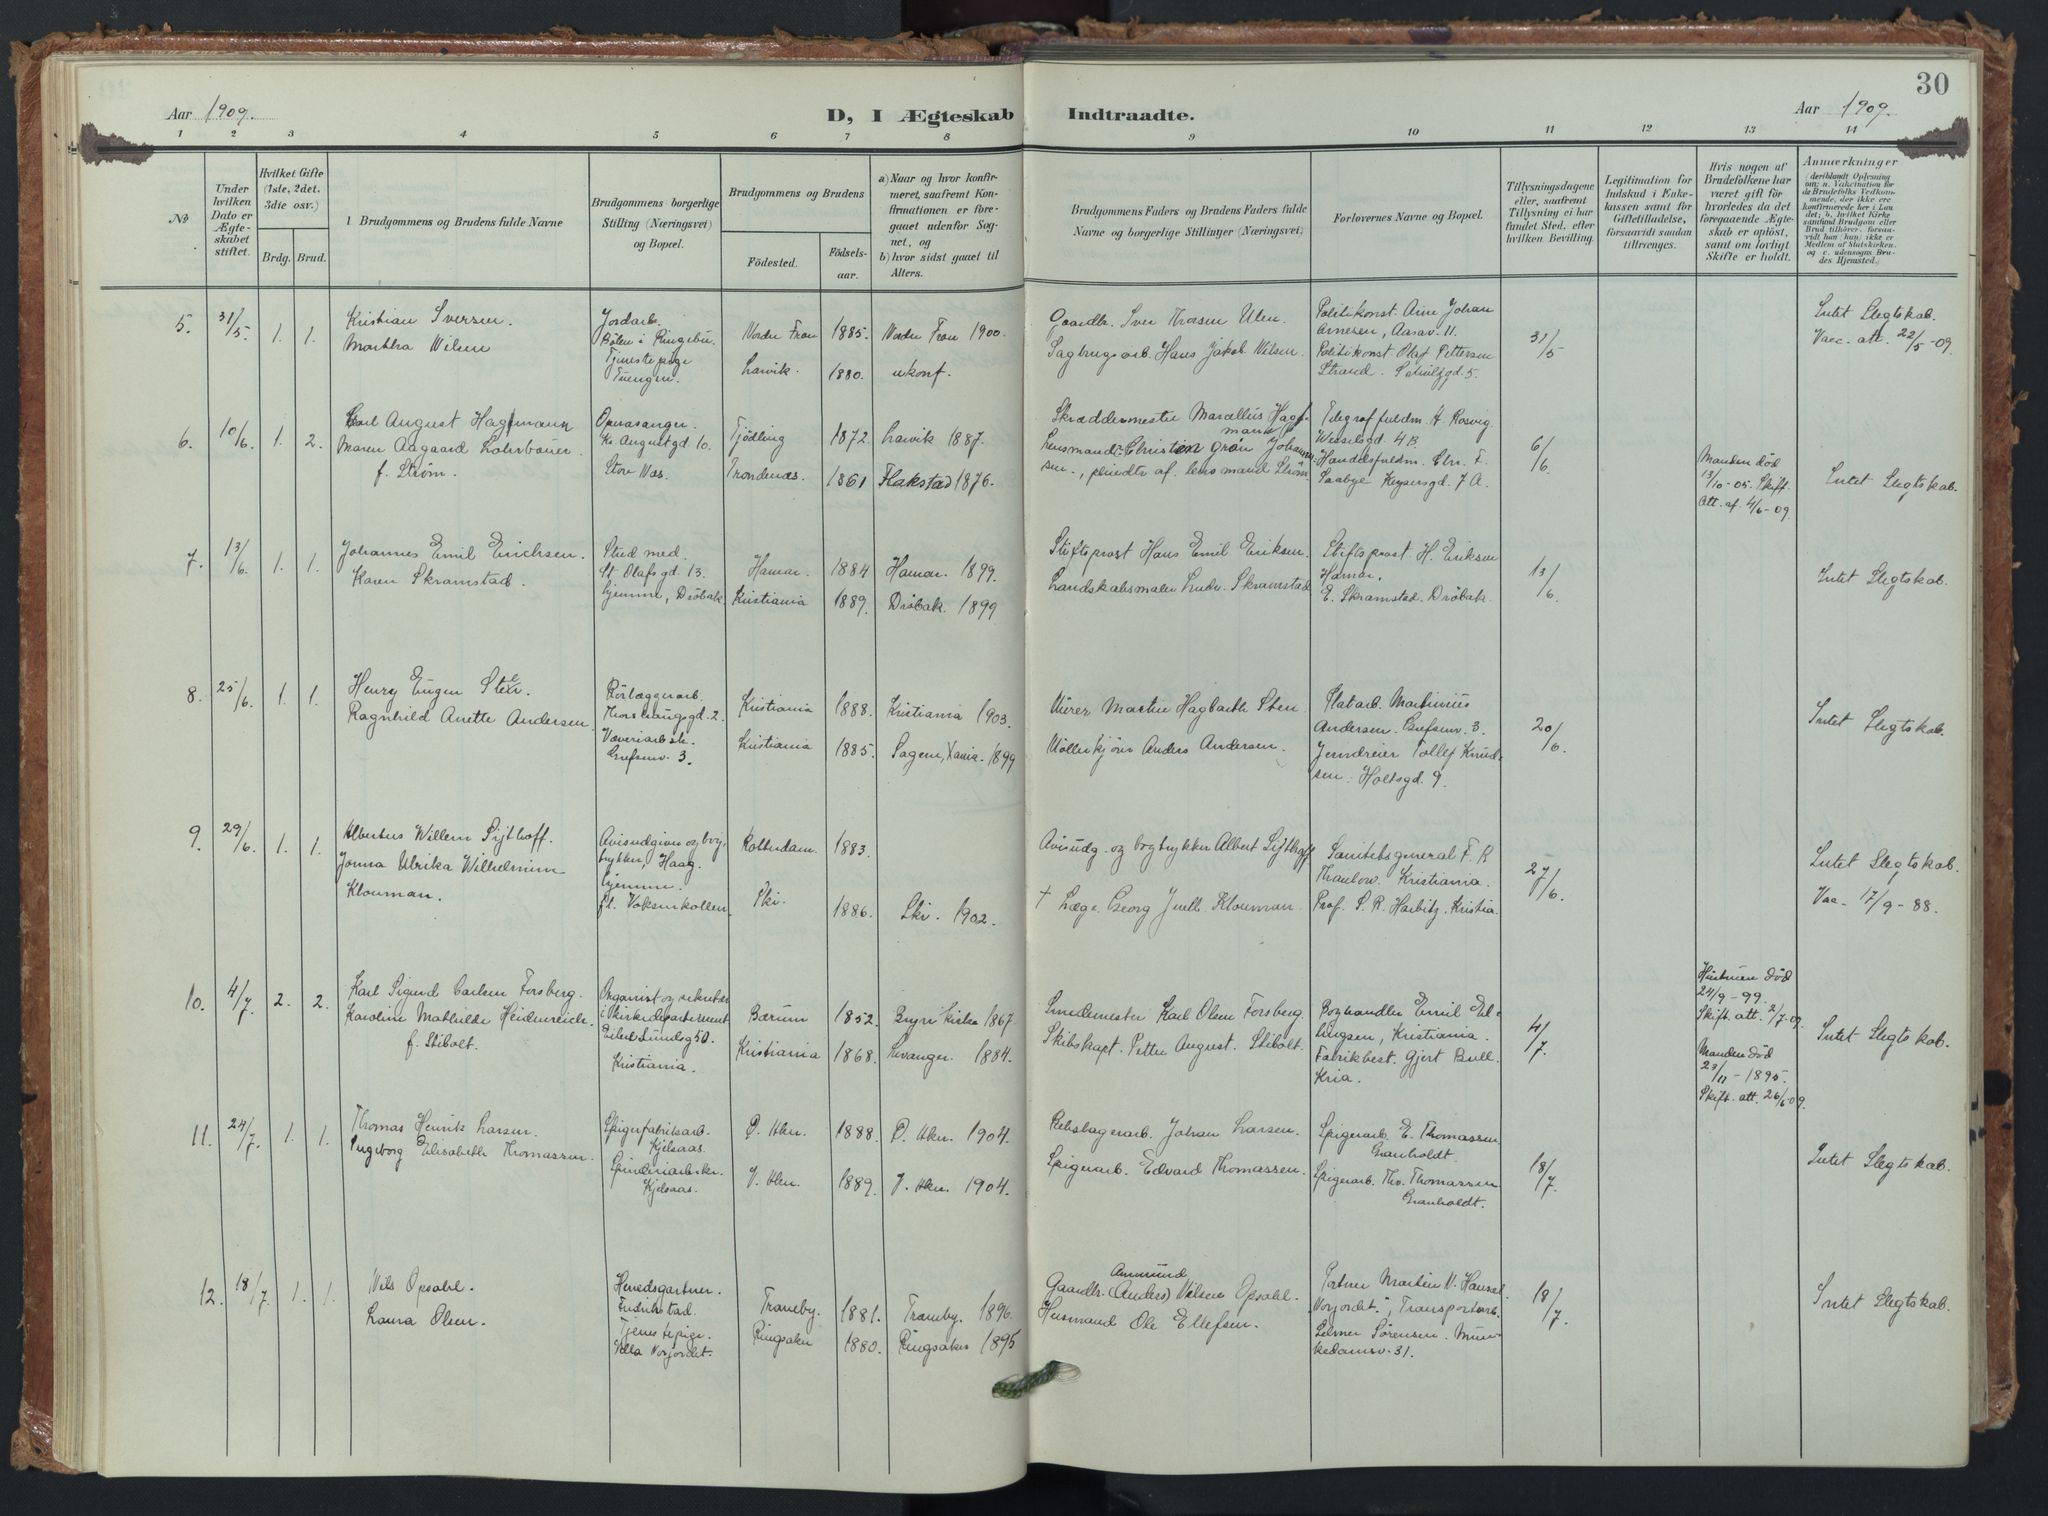 30
Aar 1909.
D, I Ægteskab Indtraadte.
Aar 1909.
1 2 3 4 5 6 7 8 9 10 11 12 13 14
No
Under hvilken Dato er Ægteskabet stiftet.
Hvilket Gifte (1ste, 2det, 3die osv.)
Brdg. Brud.
1. Brudgommens og Brudens fulde Navne
Brudgommens borgerlige Stilling (Næringsvei) og Bopæl.
Brudgommens og Brudens
Födested.
Födselsaar.
a) Naar og hvor konfirmeret, saafremt Konfirmationen er foregaaet udenfor Sognet, og
b) hvor sidst gaaet til Alters.
Brudgommens Faders og Brudens Faders fulde Navne og borgerlige Stillinger (Næringsvei)
Forlovernes Navne og Bopæl.
Tillysningsdagene eller, saafremt Tillysning ei har fundet Sted, efter hvilken Bevilling.
Legitimation for Indskud i Enkekassen samt for Giftetilladelse, forsaavidt saadan tiltrænges.
Hvis nogen af Brudefolkene har været gift för hvorledes da det foregaaende Ægteskab er oplöst, samt om lovligt Skifte er holdt.
Anmærkninger
(deriblandt Oplysning om: a. Vaccination for de Brudefolks Vedkommende, der ikke ere konfirmerede her i Landet; b. hvilket Kirkesamfund Brudgom eller Brud tilhörer, forsaavidt han (hun) ikke er Medlem af Statskirken, og c. udensogns Brudes Hjemsted.)
5. 31/5. 1. 1.
Kristian Iversen.
Martha Nilsen
Jordarb.
Bölen i Ringebu.
Tjenestepige
Tuengen.
Nordre Fron 1885. Nordre Fron 1900.
Larvik. 1880. ukonf.
Gaardbr. Iver Thorsen Ulen.
Sagbrugsarb. Hans Jakob Nilsen.
Politikonst. Arne Johan
Arnesen, Aasav. 11.
Politikonst Olaf Pettersen
Strand.
31/5
Intet Slegtskab.
Vacc. att. 22/5-09.
6. 10/6. 1. 2.
Karl August Hagemann
Maren Aagaard Lohrbauer
f. Ström.
Operasanger.
Kr. Augustgd. 10.
Store Næs.
Tjödling 1872. Larvik 1887.
Trondenæs. 1861 Flakstad 1876.
Skræddermester Marcellus Hagemann
Lensmand Christian Grön Johannsen., pleiedtr af. lensmand Ström
Telegraffuldm. H. Rosvig.
Wesselsgd. 4B
Handelsfuldm. Chr. F.
Saabye Keysersgd. 7 A.
6/6.
Manden död
13/10-05. Skift.
Att. af. 4/6-09.
Intet Slegtskab.
7. 13/6. 1. 1.
Johannes Emil Erichsen.
Karen Skramstad.
Stud med.
St. Olafsgd 13.
hjemme, Dröbak.
Hamar. 1884 Hamar. 1899.
Kristiania 1889. Dröbak. 1899
Stiftsprost Hans Emil Eriksen.
Landskabsmaler Ludv. Skramstad
Stiftsprost H. Eriksen
Hamar.
E. Skramstad. Dröbak.
13/6.
Intet Slegtskab.
8. 25/6. 1. 1.
Henry Eugen Sten.
Ragnhild Anette Andersen.
Rörlæggerarb.
Thorshaugsgd. 2
Væveriarbsk.
Grefsenv. 3.
Kristiania 1888. Kristiania 1903.
Kristiania 1885. Sagene, Xania. 1899
Murer Martin Hagbarth Sten
Möllerkjörer Anders Andersen.
Platarb. Martinius
Andersen. Grefsenv. 3.
Jerndreier Tollef Knudsen. Holtsgd. 9.
20/6.
Intet Slegtskab.
9. 29/6. 1. 1.
Albertus Willem Sijthoff.
Jonna Ulrika Wilhelmine
Klouman.
Avisudgiver og bogtrykker, Haag.
hjemme.
fl. Voksenkollen.
Rotterdam. 1883.
Ski. 1886. Ski. 1902.
Avisudg. og bogtrykker Albert Sijthoff
† Læge. Georg Juell. Klouman.
Sanitetsgeneral F. R
Thaulow. Kristiania.
Prof. S. R. Harbitz. Kristia.
27/6.
Intet Slegtskab.
Vac. 17/9-88.
10. 4/7. 2. 2.
Karl Sigurd Carlsen Forsberg.
Karoline Mathilde Heidenreich.
f. Stibolt.
Organist og sekretær
i kirkedepartementet
Eilert Sundsg 50.
Kristiania.
Bærum 1852. Bryn Kirke 1867.
Kristiania 1868. Levanger. 1884.
Smedemester Karl Olsen Forsberg.
Skibskapt. Petter August. Stibolt.
Boghandler Emil Ellingsen, Kristiania.
Fabrikbest. Gjert Bull.
Kria.
4/7.
Hustruen död
24/9-99.
Skift. att. 2/7-09.
Manden död
23/11-1895.
Skift. att. 26/6-09.
Intet Slegtskab.
11. 24/7. 1. 1.
Thomas Henrik Larsen.
Ingeborg Elisabeth Thomassen.
Spigerfabriksarb.
Kjelsaas.
Spinderiarbske.
Kjelsaas.
Ö. Aker. 1888. Ö. Aker. 1904.
V. Aker. 1889. V. Aker. 1904.
Rebslagerarb. Johan Larsen.
Spigerarb. Edvard Thomassen.
Spigerarb. E. Thomassen.
Granholdt.
Spigerarb. Thv. Thomassen
Granholdt.
18/7.
Intet Slegtskab.
12. 18/7. 1. 1.
Nils Opsahl.
Laura Olsen.
Herredsgartner.
Fredrikstad.
Tjenestepige.
Villa Norjordet.
Traneby. 1881. Traneby. 1896.
Ringsaker 1880. Ringsaker 1895
Ammund
Gaardbr. (Anders) Nilsen Opsahl.
Husmand Ole Ellefsen.
Portner Martin N. Hansel
Norjordet", Transportarb.
Selmer Sörensen. Munkedamsv. 31.
18/7.
Intet Slegtskab.